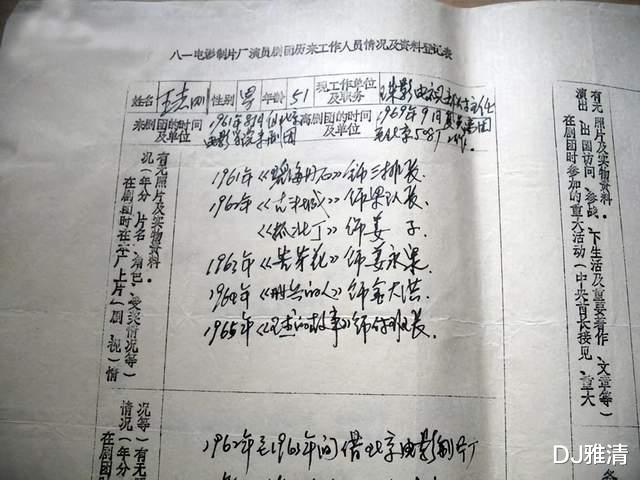 八一电影制片厂演员剧团历来工作人员情况及资料登记表
姓名 王志刚 性别 男 年龄 51 现工作单位及职务 珠影电视部 主任
来剧团的时间及单位 1961年8月从北京电影学院来剧团 离剧团的时间及单位 1969年9月复员离团
在北京5087工作.
有无照片及实物资料
况（年分、片名、角色、受奖情况等）
在剧团时在本厂上片（剧、视）情
1961年《碧海丹心》饰三排长.
1962年《古 城》饰梁队长.
《抓壮丁》饰姜 子.
1963年《苦菜花》饰姜永泉.
1964年《 的人》饰金大洪.
1965年《 的故事》饰 班长.
有无照片及实物资料。
演出、出国访问、参战、下生活及重要著作、文章等）
在剧团时参加的重大活动（中央首长接见、重大
况等）有无
情况（年分
在剧团
1962年至1963年间借北京电影制片厂
DJ雅清